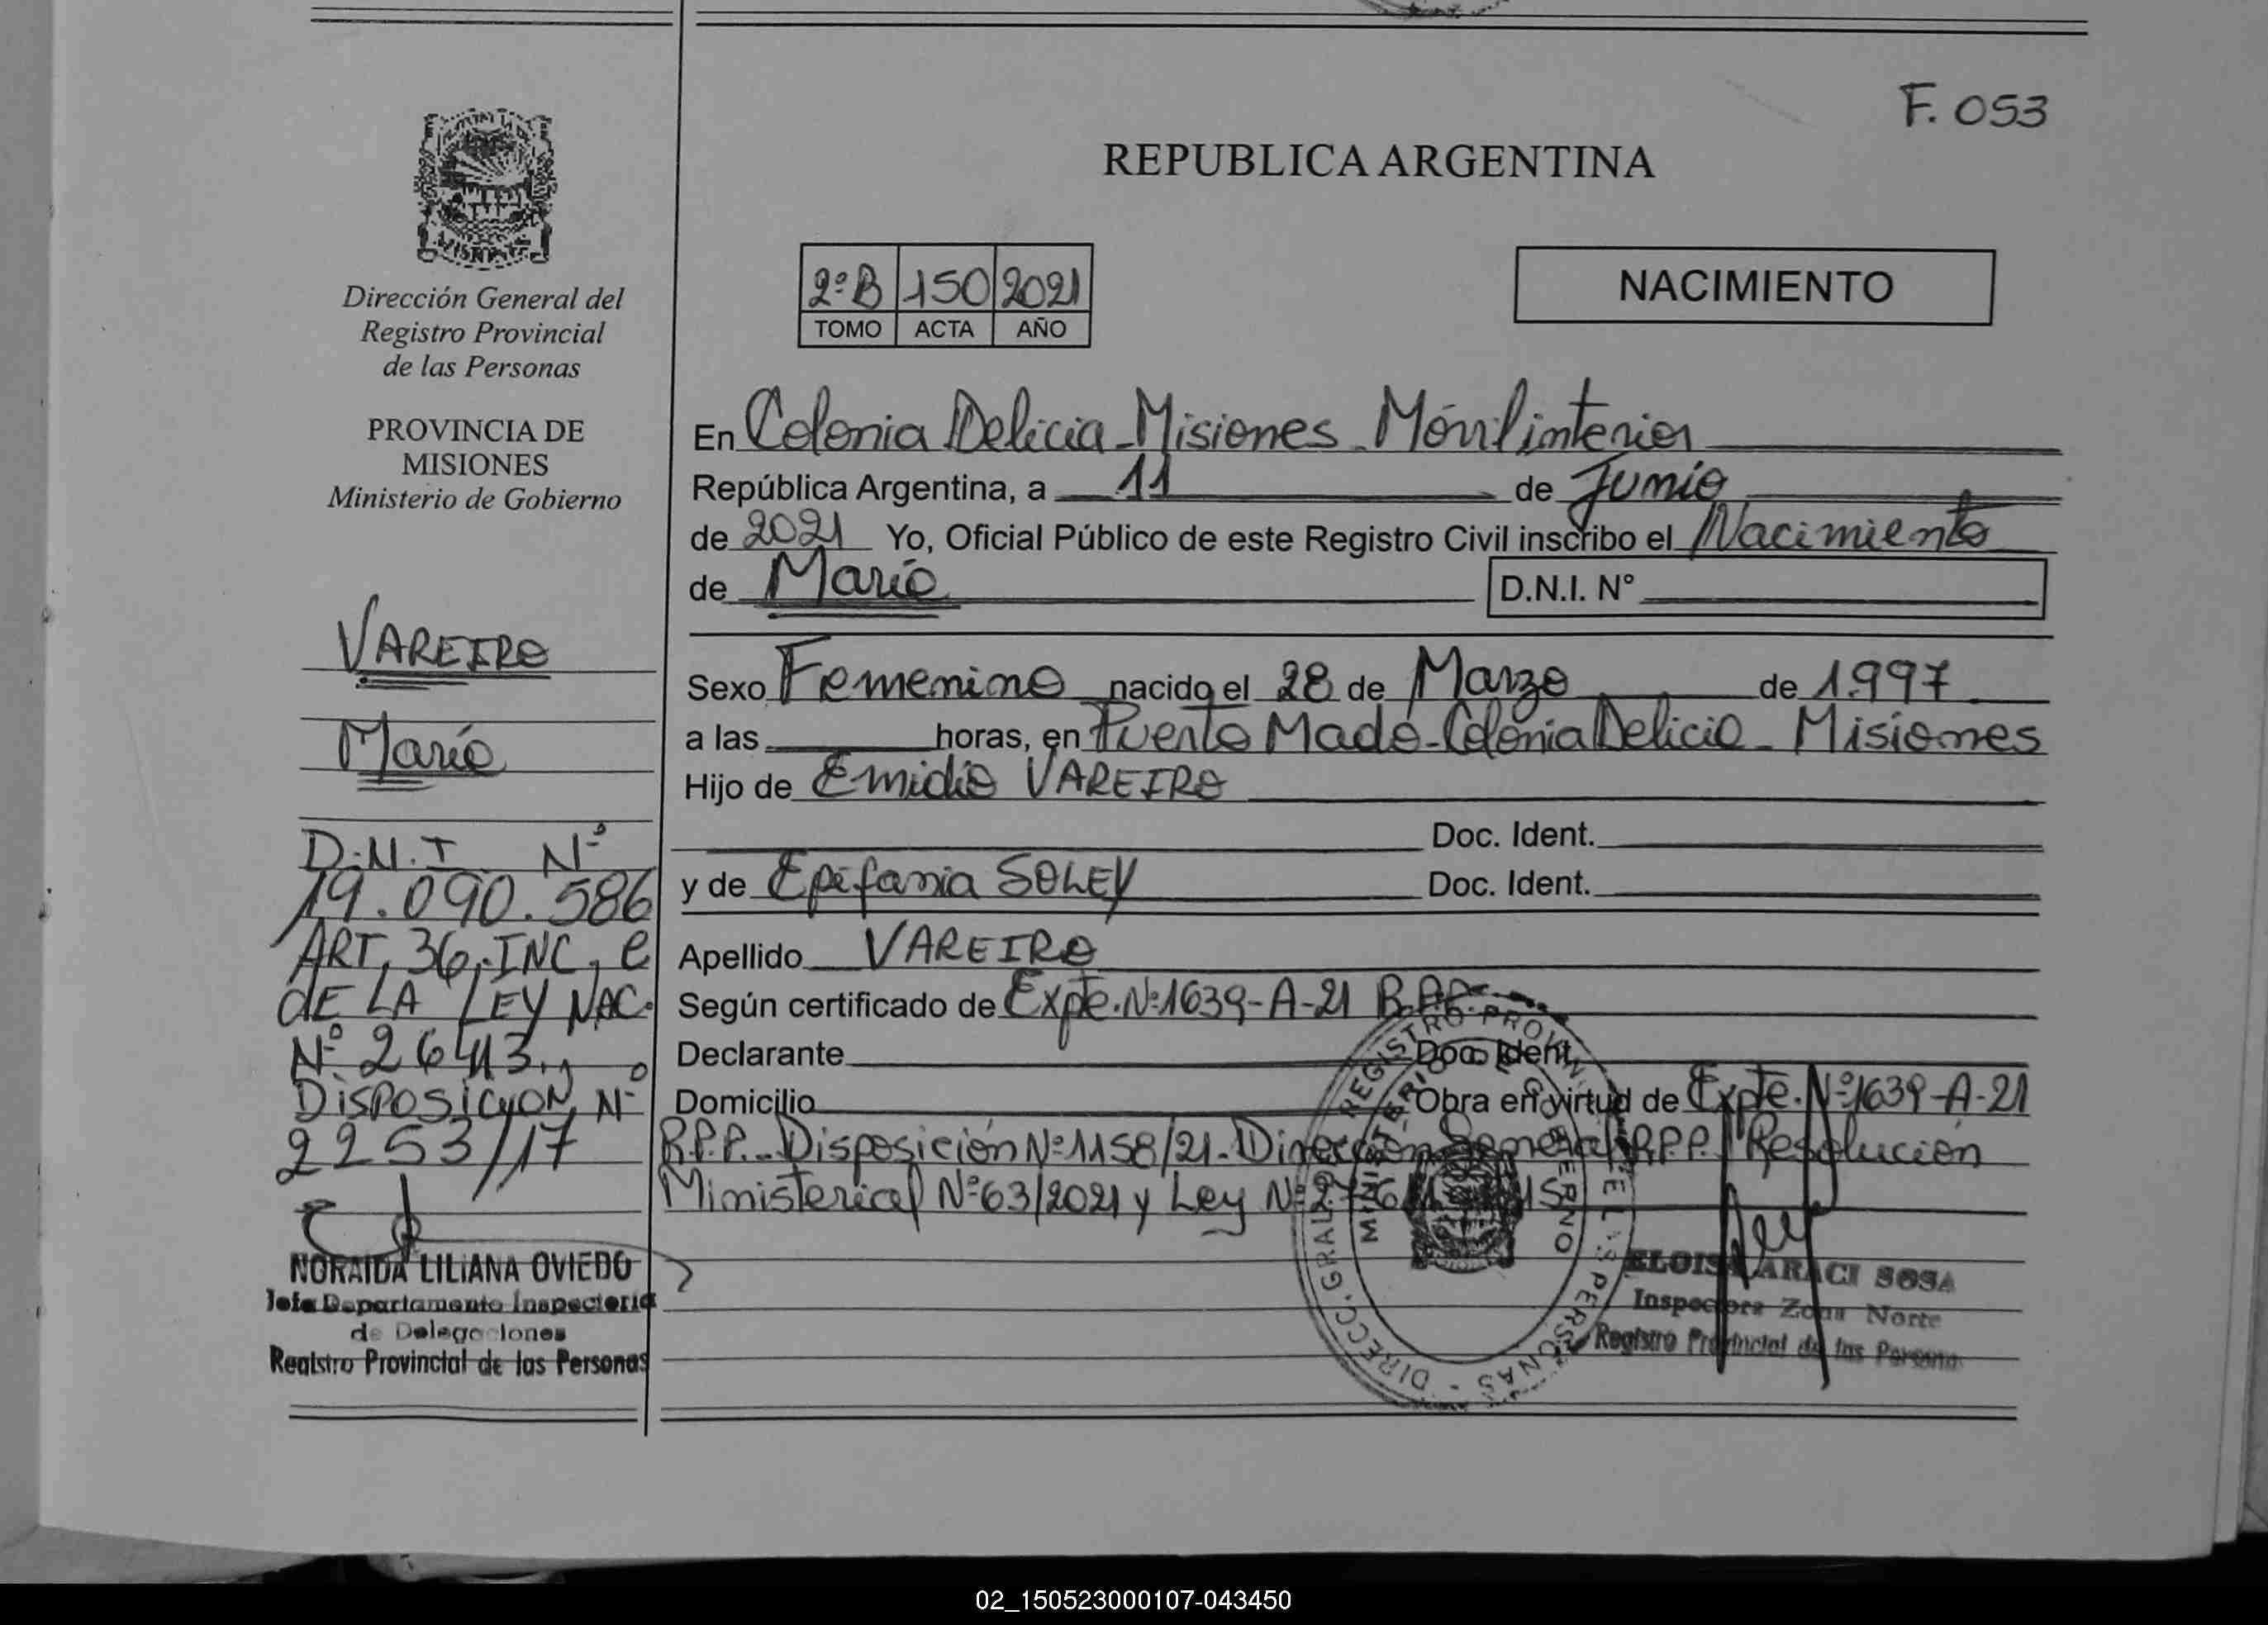 F. 053
REPUBLICA ARGENTINA
MISIONES
Dirección General del
Registro Provincial
de las Personas
PROVINCIA DE
MISIONES
Ministerio de Gobierno
VAREIRO
María
D.N.I Nº
19.090.586
ART. 36, INC, e
dE LA LEY NAC.
Nº 26413,,
DisPosicion Nº
2253/17
NORAIDA LILIANA OVIEDO
Jefa Departamento Inspectoria
de Delegaciones
Registro Provincial de las Personas
2ºB 150 2021
TOMO ACTA AÑO
NACIMIENTO
En Colonia Delicia - Misiones - Móvil interior
República Argentina, a 11 de Junio
de 2021 Yo, Oficial Público de este Registro Civil inscribo el Nacimiento
de María D.N.I. N°
Sexo Femenino nacido el 28 de Marzo de 1997
a las horas, en Puerto Mado - Colonia Delicia - Misiones
Hijo de Emidio VAREIRO
Doc. Ident.
y de Epifania SOLEY Doc. Ident.
Apellido VAREIRO
Según certificado de Expte. Nº1639-A-21 R.P.P.
Declarante Doc. Ident.
Domicilio Obra en virtud de Expte. Nº1639-A-21
R.P.P. - Disposición Nº1158/21 - Dirección General R.P.P. Resolución
Ministerial Nº63/2021 y Ley Nº
REGISTRO PROVIN DE LAS PERSONAS - DIRECC. GRAL. D
MINISTERIO DE GOBIERNO
ELOISA ARACI SOSA
Inspectora Zona Norte
Registro Provincial de las Personas
02_150523000107-043450